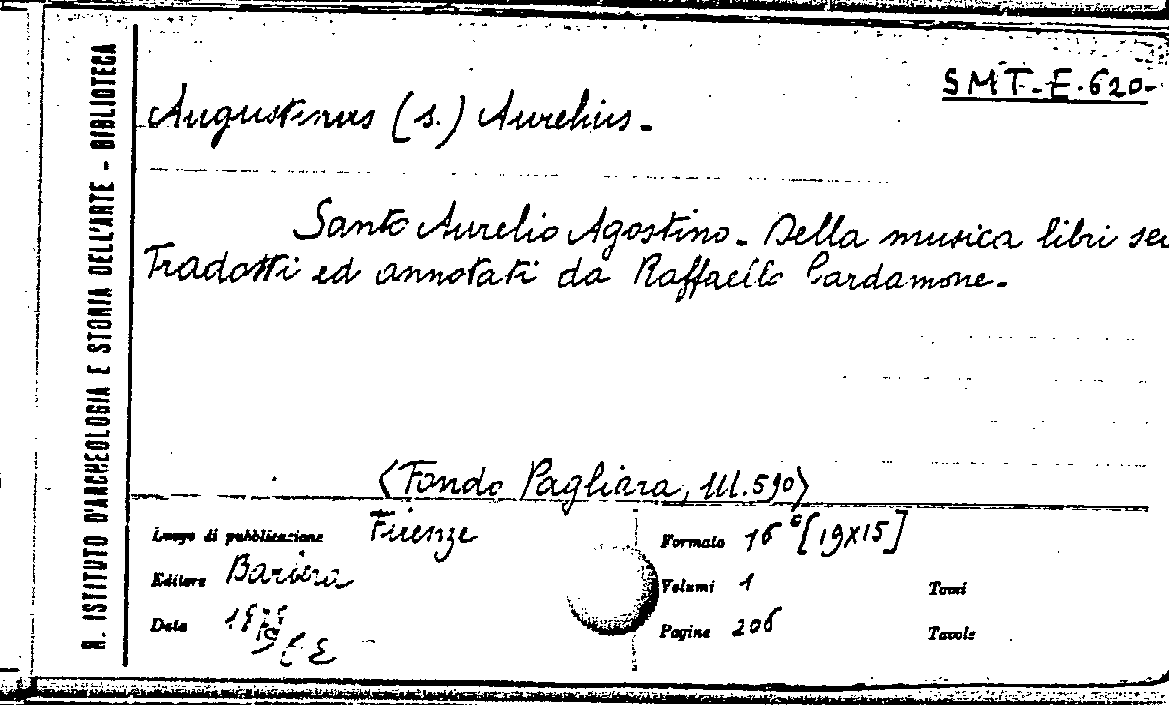 R. ISTITUTO D'ARCHEOLOGIA E STORIA DELL'ARTE - BIBLIOTECA
SMT-E.620-
Augustinus (s.) Aurelius.-
Santo Aurelio Agostino. Della musica libri sei
Tradotti ed annotati da Raffaello Cardamone.-
<Fondo Pagliara, III.590>
Luogo di pubblicazione Firenze
Editore
Data
Formato 16° [19X15]
Volumi 1
Tomi
Pagine 206
Tavole